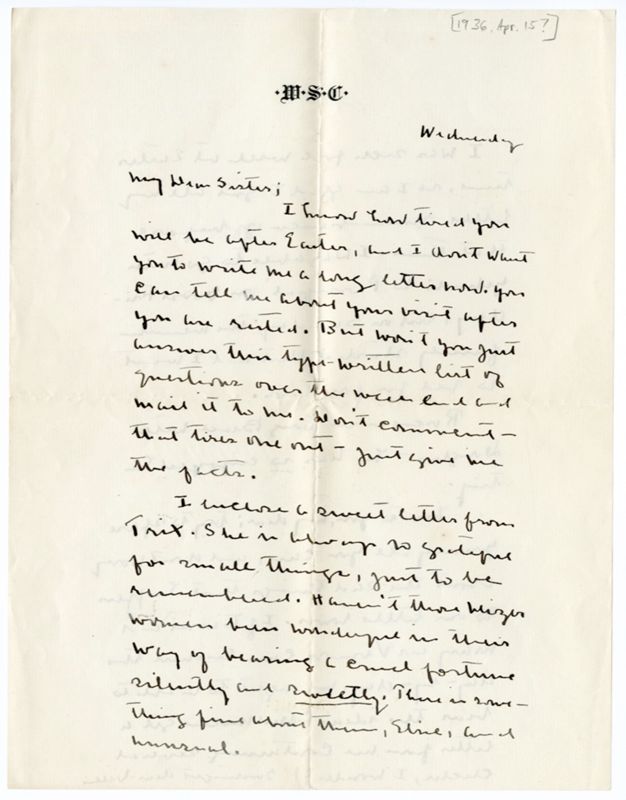 [1936, Apr. 15?]
·W·S·C·
Wednesday
My Dear Sister;
I know how tired you
will be after Easter, and I don't want
you to write me a long letter now. You
can tell me about your visit after
you are rested. But won't you just
answer this type-written list of
questions over the week end and
mail it to me. Don't comment –
that tires one out – just give me
the facts.
I enclose a sweet letter from
Trix. She is always so grateful
for small things, just to be
remembered. Haven't those Mizer
women been wonderful in their
way of bearing a cruel fortune
silently and sweetly. There is some-
thing fine about them, Elsie, and
unusual.